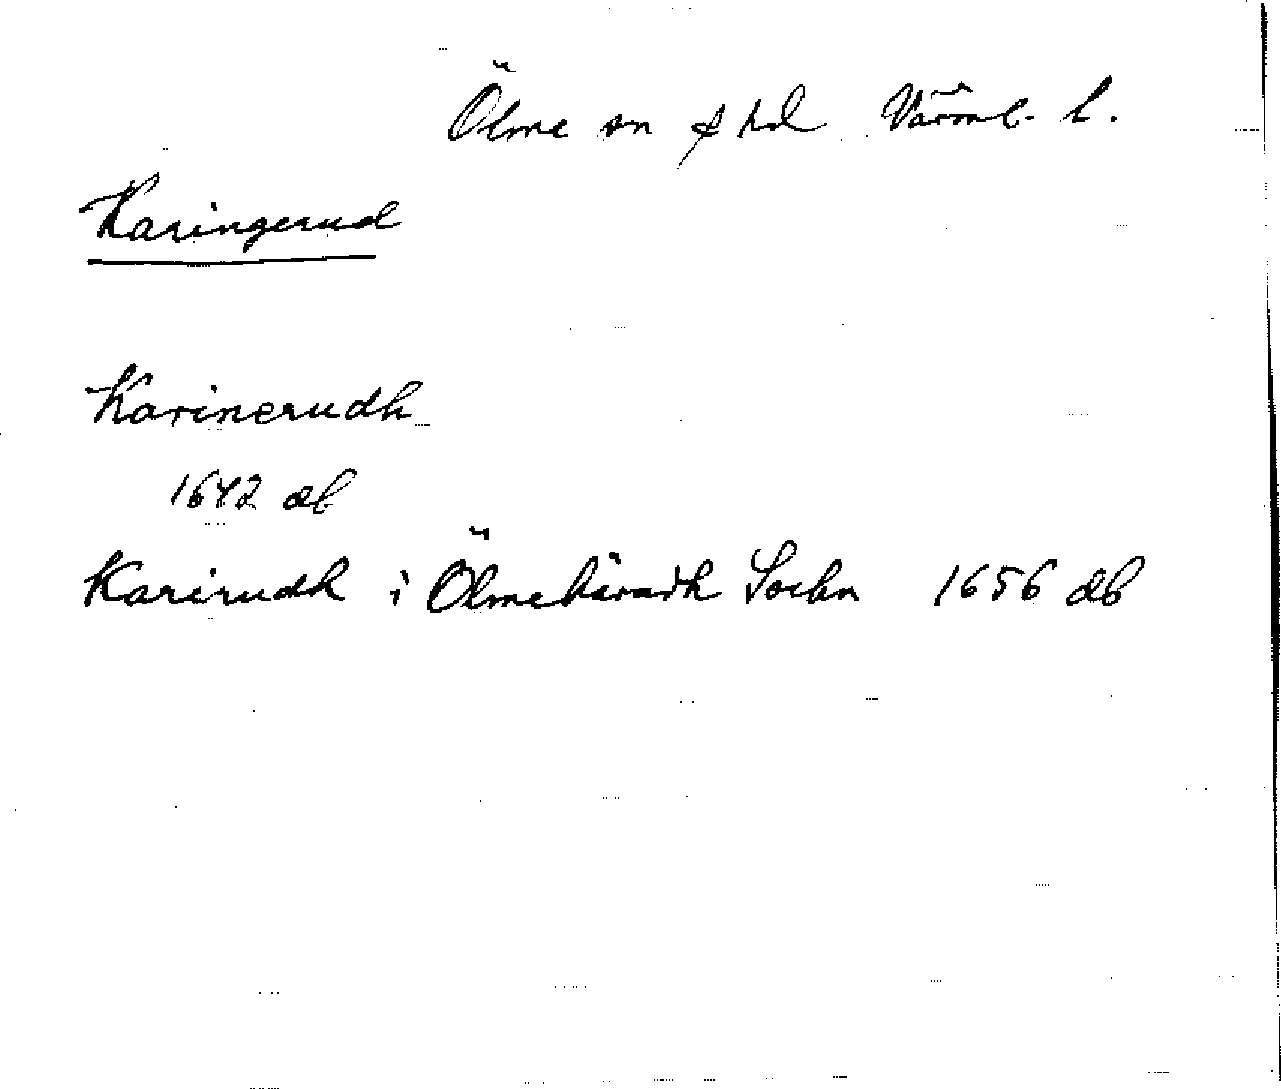 Ölme sn & hd Värml. l.
Karingerud
Karinerudh
1642 db
Karirudh i Ölmehäradh Sochn 1656 db